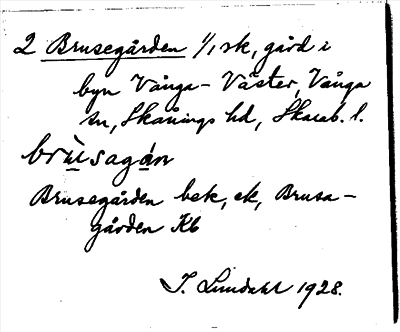 2 Brusegården 1/1 sk, gård i
byn Vånga - Väster, Vånga
sn, Skånings hd, Skarab. l.
brùsagán
Brusegården bek, ek, Brusa-
gården Kb
I. Lundahl 1928.